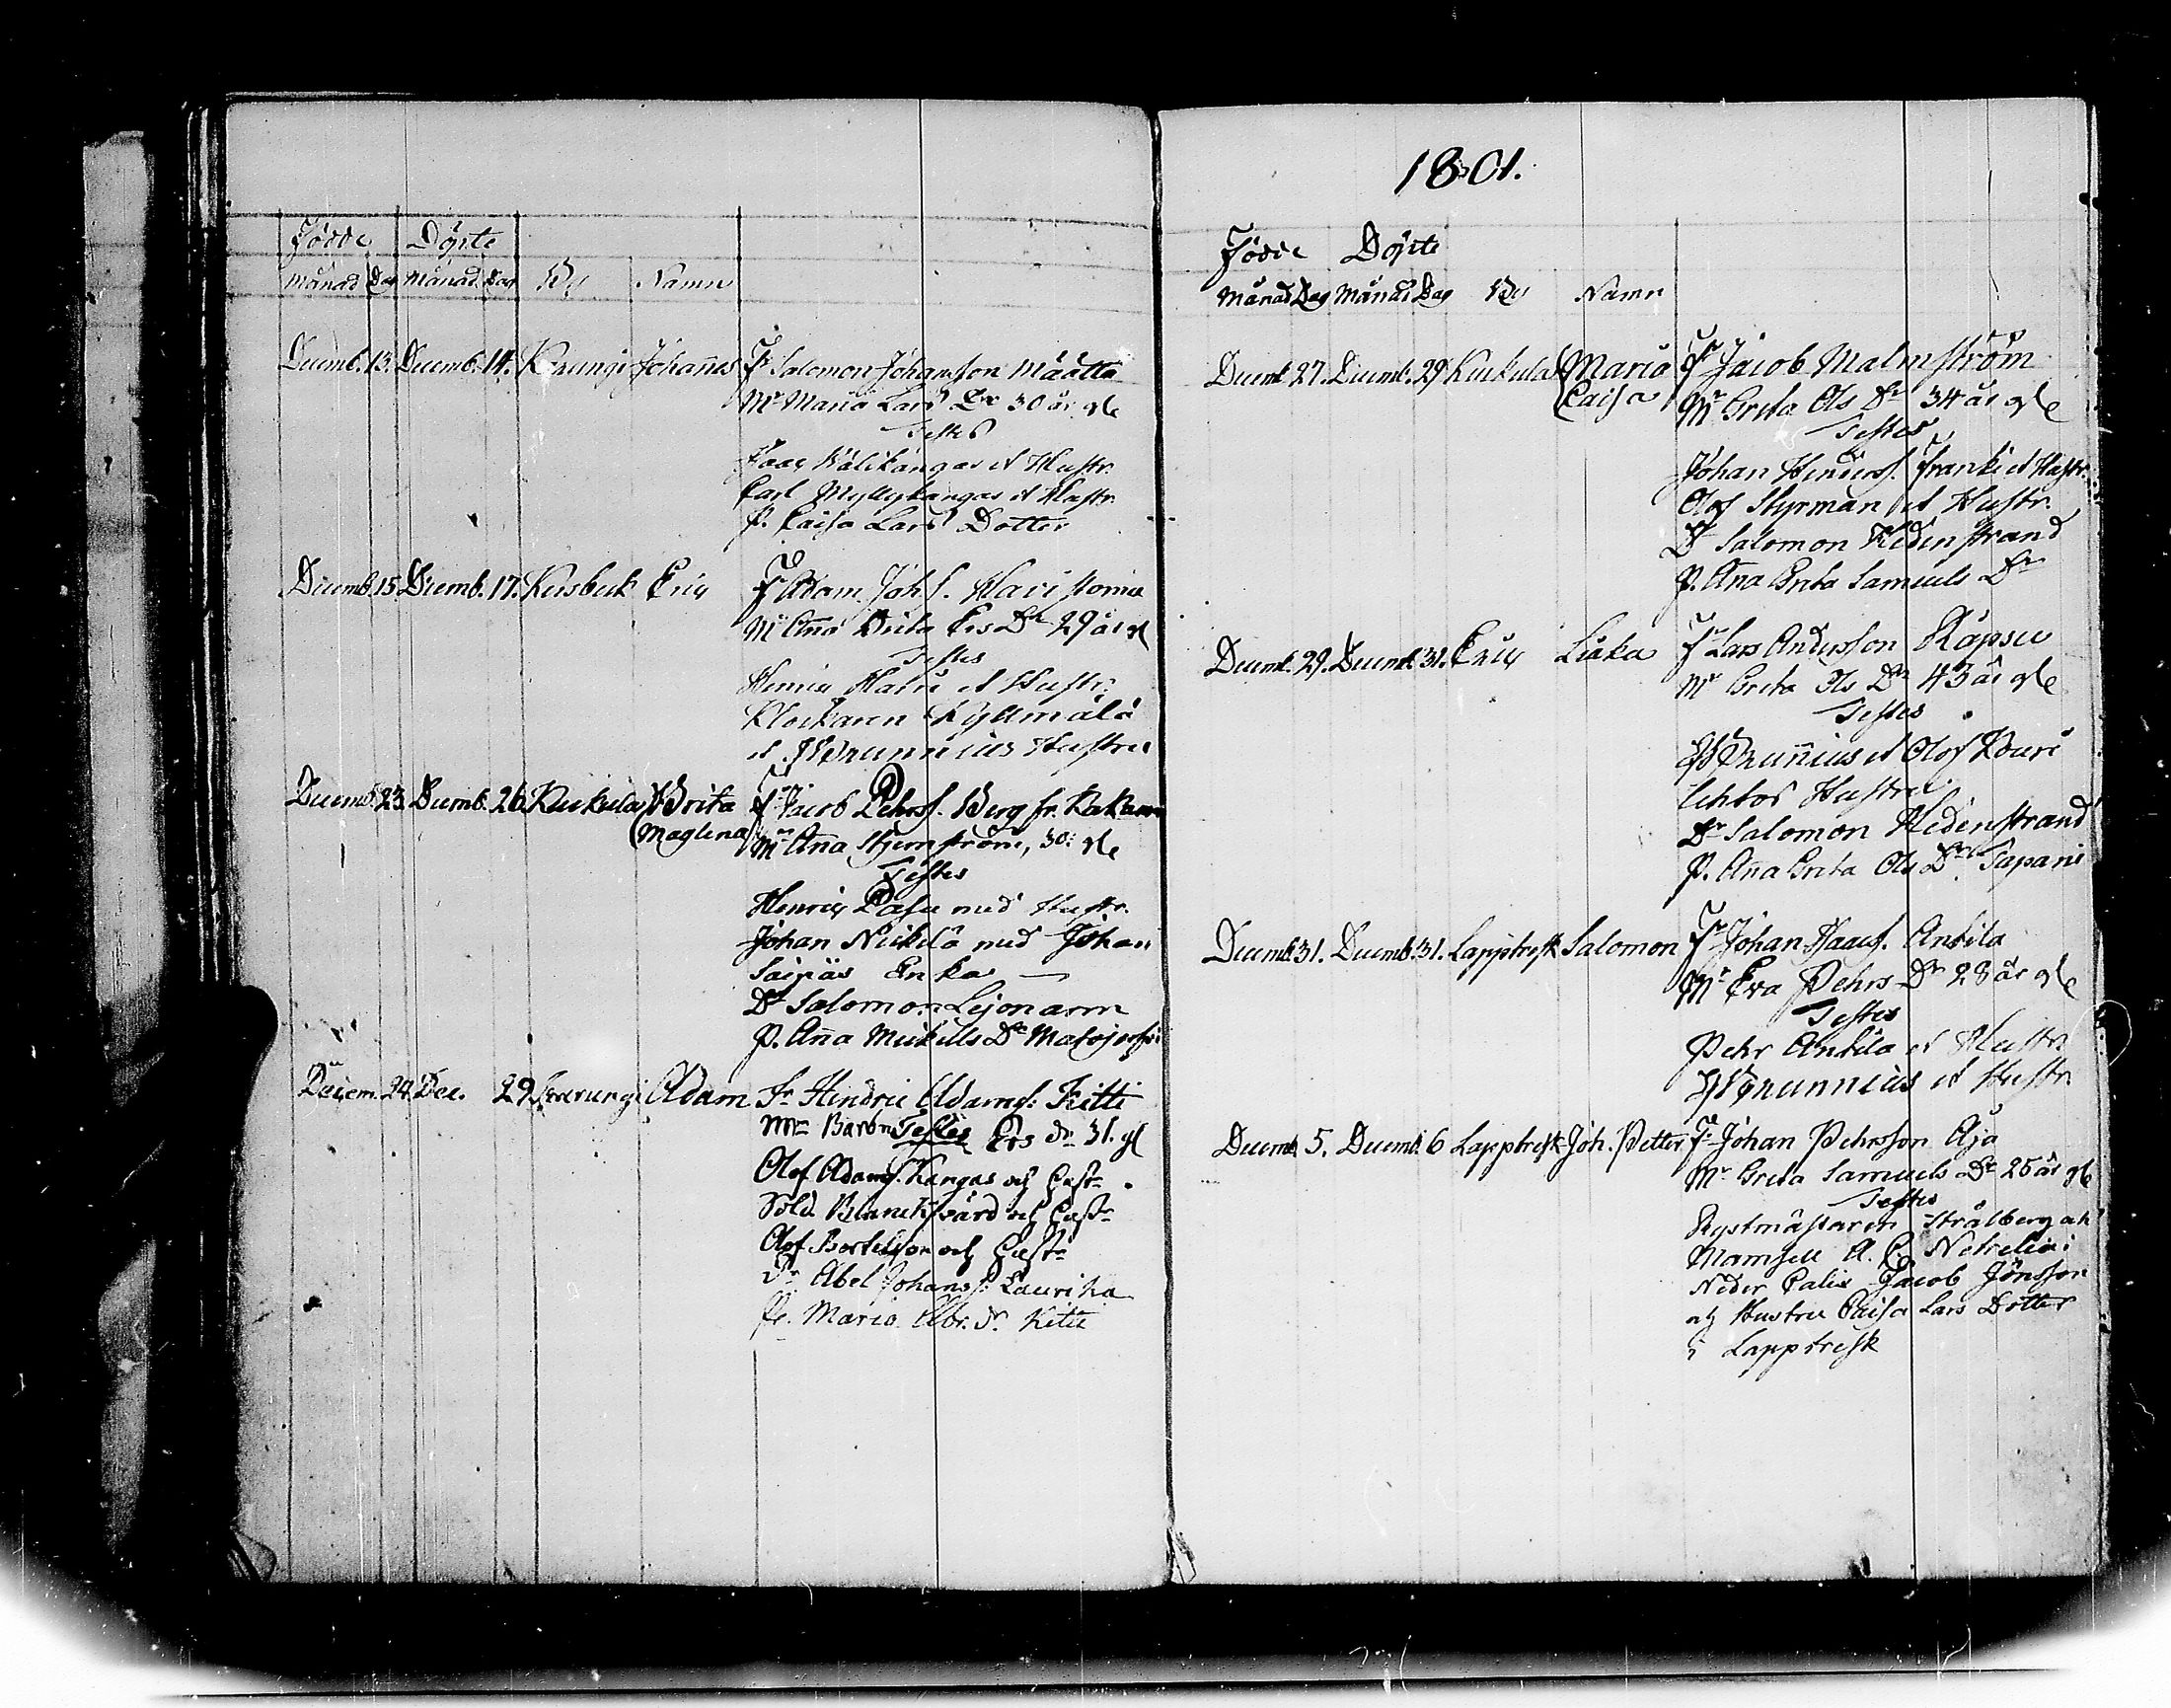 Födde Döpte
Månad Dag Månad Dag By Namn
Decemb. 13. Decemb. 14. Karungi Johañes Fr Salomon Johansson Määtta
Mr Maria Lars Dr 30 år gl
Testes
Isaac Välikangas et Hustr.
Carl Myllykangas et Hustr.
P. Caisa Lars Dotter
Decemb. 15. Decemb. 17. Korsbeck Eric Fr Adam Joh s.
Mr Aña Brita Ers Dr 29 år gl
Testes
Henric et Hustr.
Klockaren Kyllmälä
et Brunnius Hustru
Decemb. 23. Decemb. 26. Kuckula Brita Fr Jacob Pehrs s. Berg fr.
Maglena Mr Aña Stjernström, 30: gl
Testes
Henric med Hustr.
Johan Nickilä med Johan
Saipäs Enka
Dr Salomon Lejonarm
P. Aña Mickells Dr
Decem. 24 Dec. 29 Karungi Adam Fr Hindric Adams s. Kitti
Mr Barbr. Ers dr 31. gl
Testes
Olof Adams s. Kangas och hustr
Sold. Blanck och hustr
Olof Bertilsson och hustr
Dr Abel Johans s. Laurika
P. Maria Abr. dr Kitti
1801.
Födde Döpte
Månad Dag Månad Dag By Namn
Decemb. 27. Decemb. 29 Kuckula Maria Fr Jacob Malmström
Caisa Mr Greta Ols Dr 34 år gl
Testes
Johan Henders s. Franki et Hustr.
Olof Styrman et Hustr.
Dr Salomon Hedenstrand
P. Aña Brita Samuels Dr
Decemb. 29. Decemb. 31. Eric Liaka Fr Lars Andersson Räpsu
Mr Greta Ols Dr 43 år gl
Testes
Bruñius et Olof
Hustru
Dr Salomon Hedenstrand
P. Aña Greta Ols Dr Tapani
Decemb. 31. Decemb. 31. Lappträsk Salomon Fr Johan Isaacs s. Antila
Mr Eva Pehrs Dr 28 år gl
Testes
Pehr Antila et Hustr.
Brunnius et Hustr.
Decemb. 5. Decemb. 6 Lappträsk Joh. Petter Fr Johan Pehrsson Äjä
Mr Greta Samuels Dr 25 år gl
Testes
Rystmästaren Strålberg och
Mamsell A. C. Netrelia i
Neder Calix Jacob Jönsson
och Hustru Caisa Lars Dotter
i Lappträsk